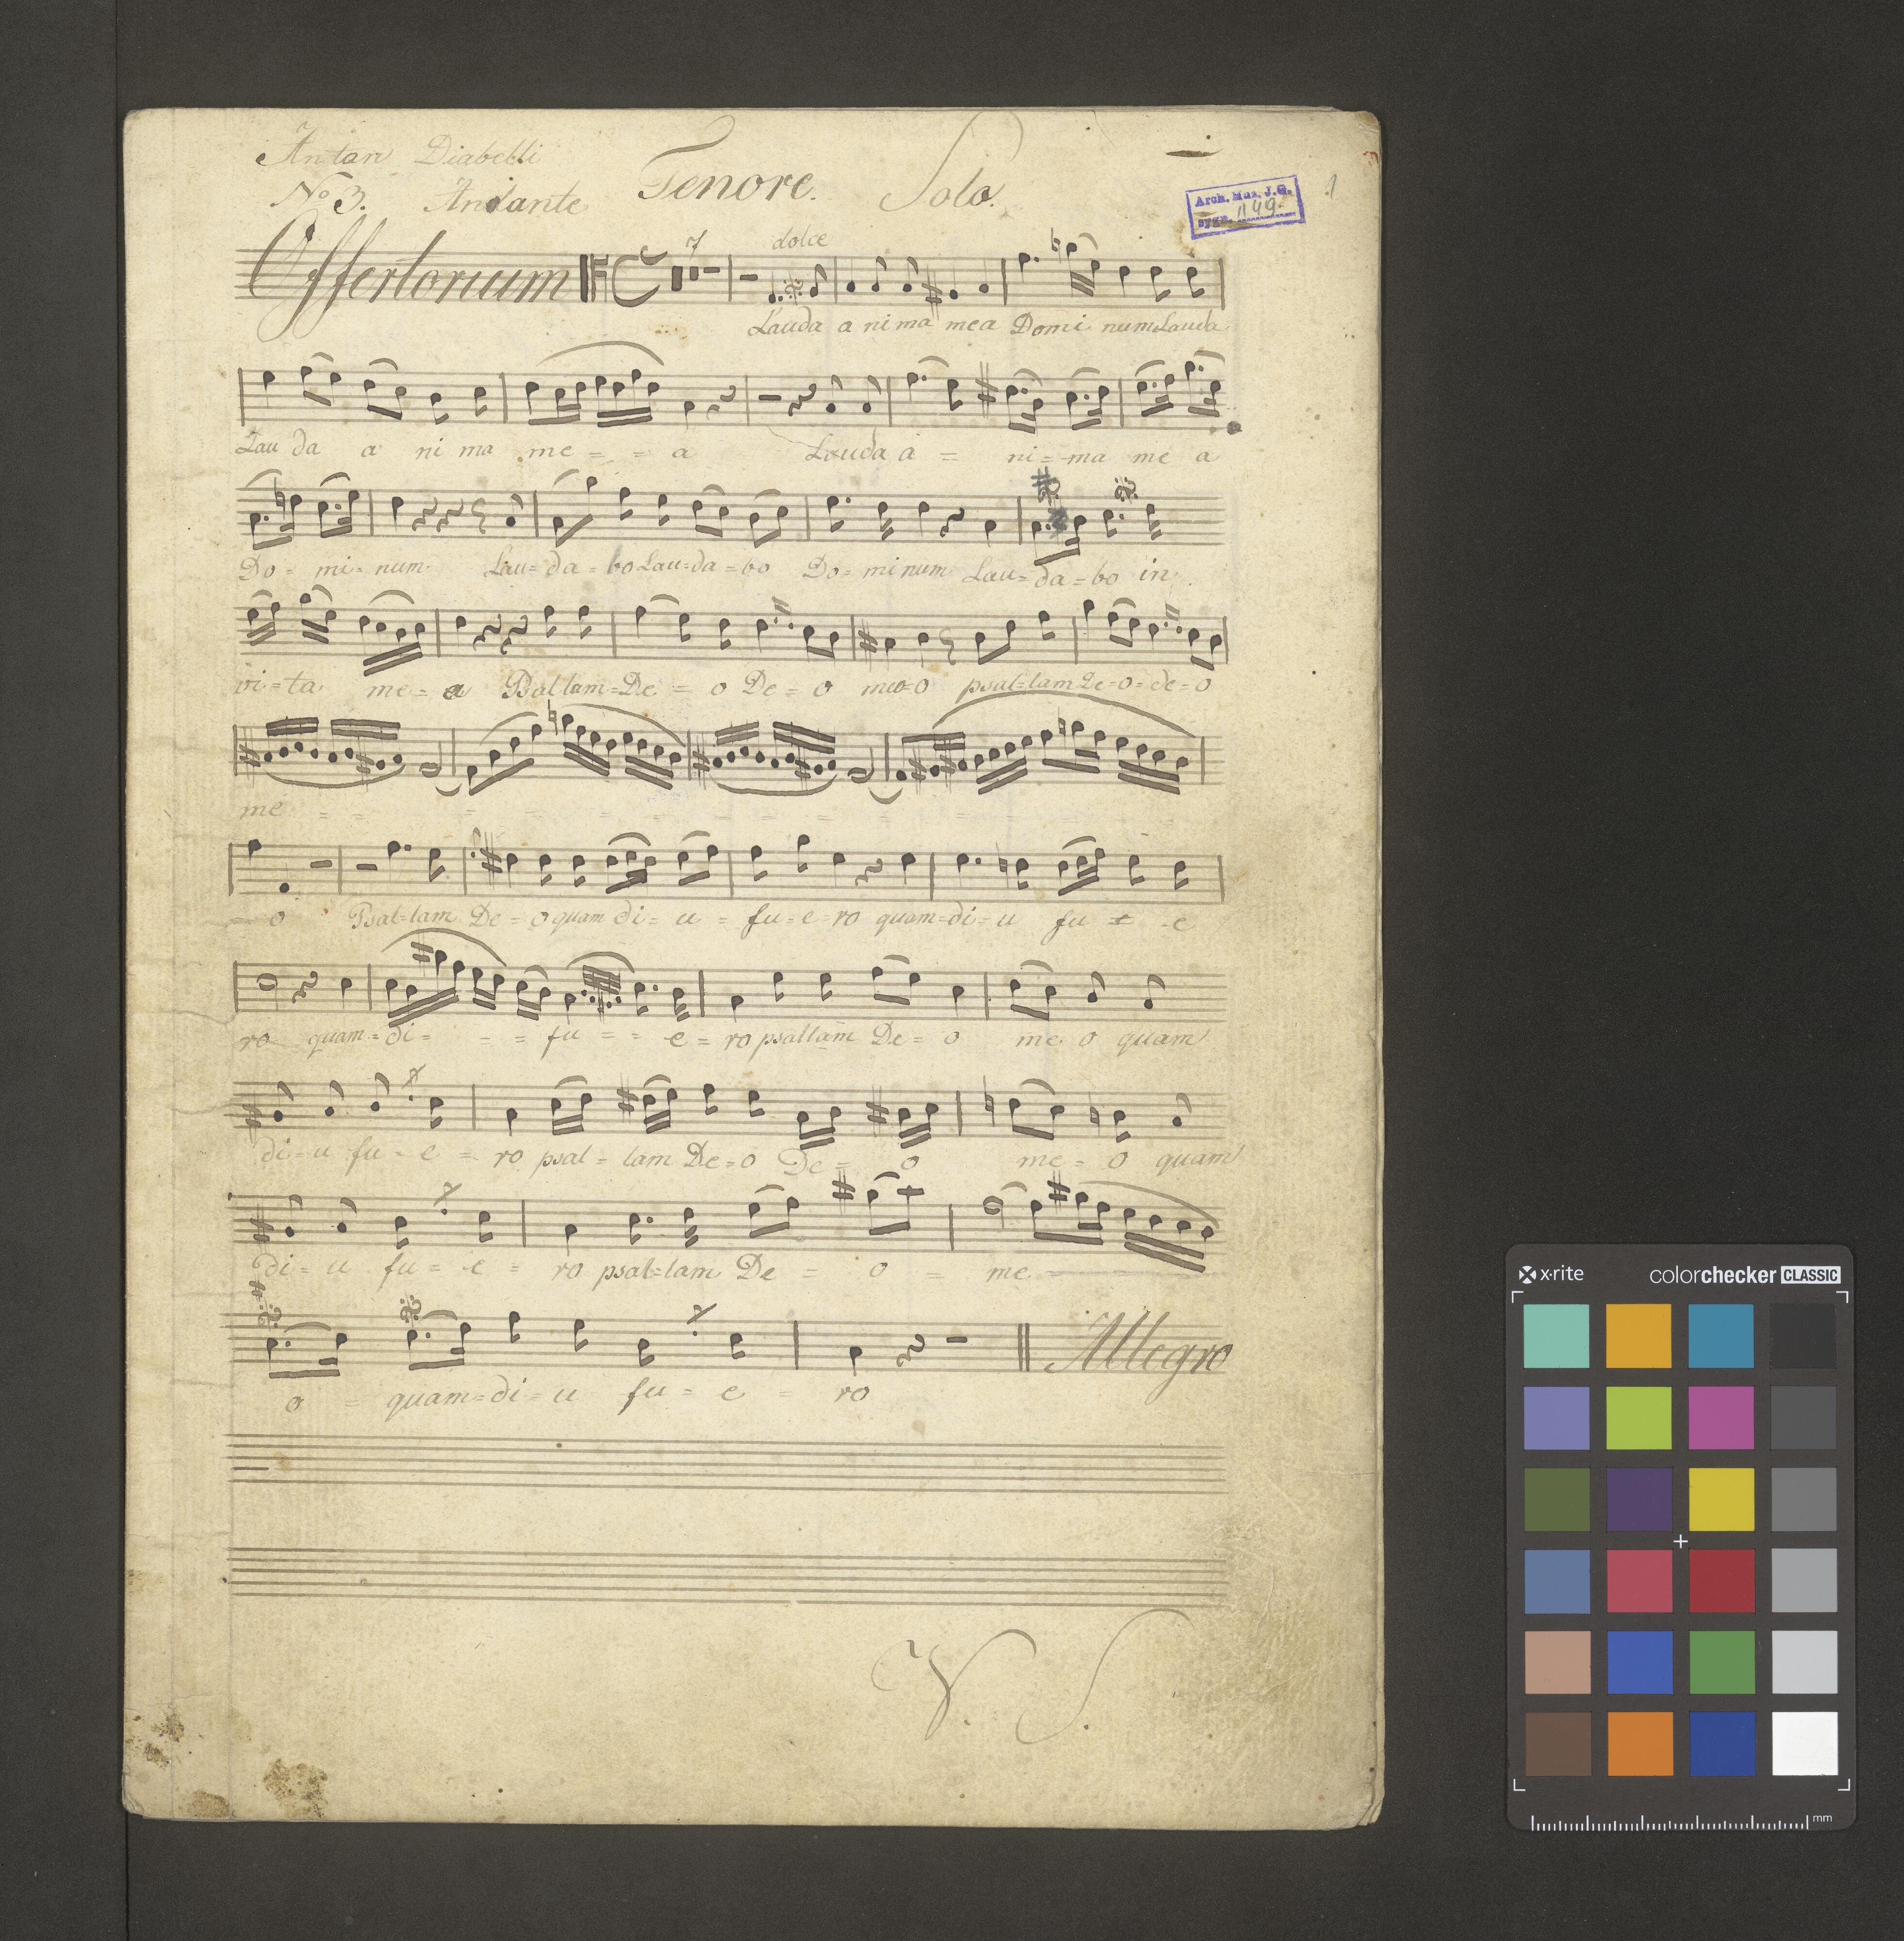 Anton Diabelli
Tenore. Solo.
No 3. Andante
Arch. Mus. J.G.
sygn. 1149.
1
7 dolce
Offertorium
Lauda a ni ma mea Domi num Lauda
Lau da a ni ma me = = a Lauda a = ni = ma me a
Do = mi = num Lau = da = bo Lau = da = bo Do = mi num Lau = da = bo in
vi = ta me = a Psal lam = De = o De = o me = o psal = lam De = o = de = o
me = = = = = = = = = =
= o Psal = lam De = o quam di = u = fu = e = ro quam = di = u fu = e
ro quam = di = = = fu = = e = ro psallam De = o me o quam
di = u fu = e = ro psal = lam De = o De = o me = o quam
di = u fu = e = ro psal = lam De = o = me
o = quam = di = u fu = e = ro
Allegro
V. S.
x·rite colorchecker CLASSIC
mm